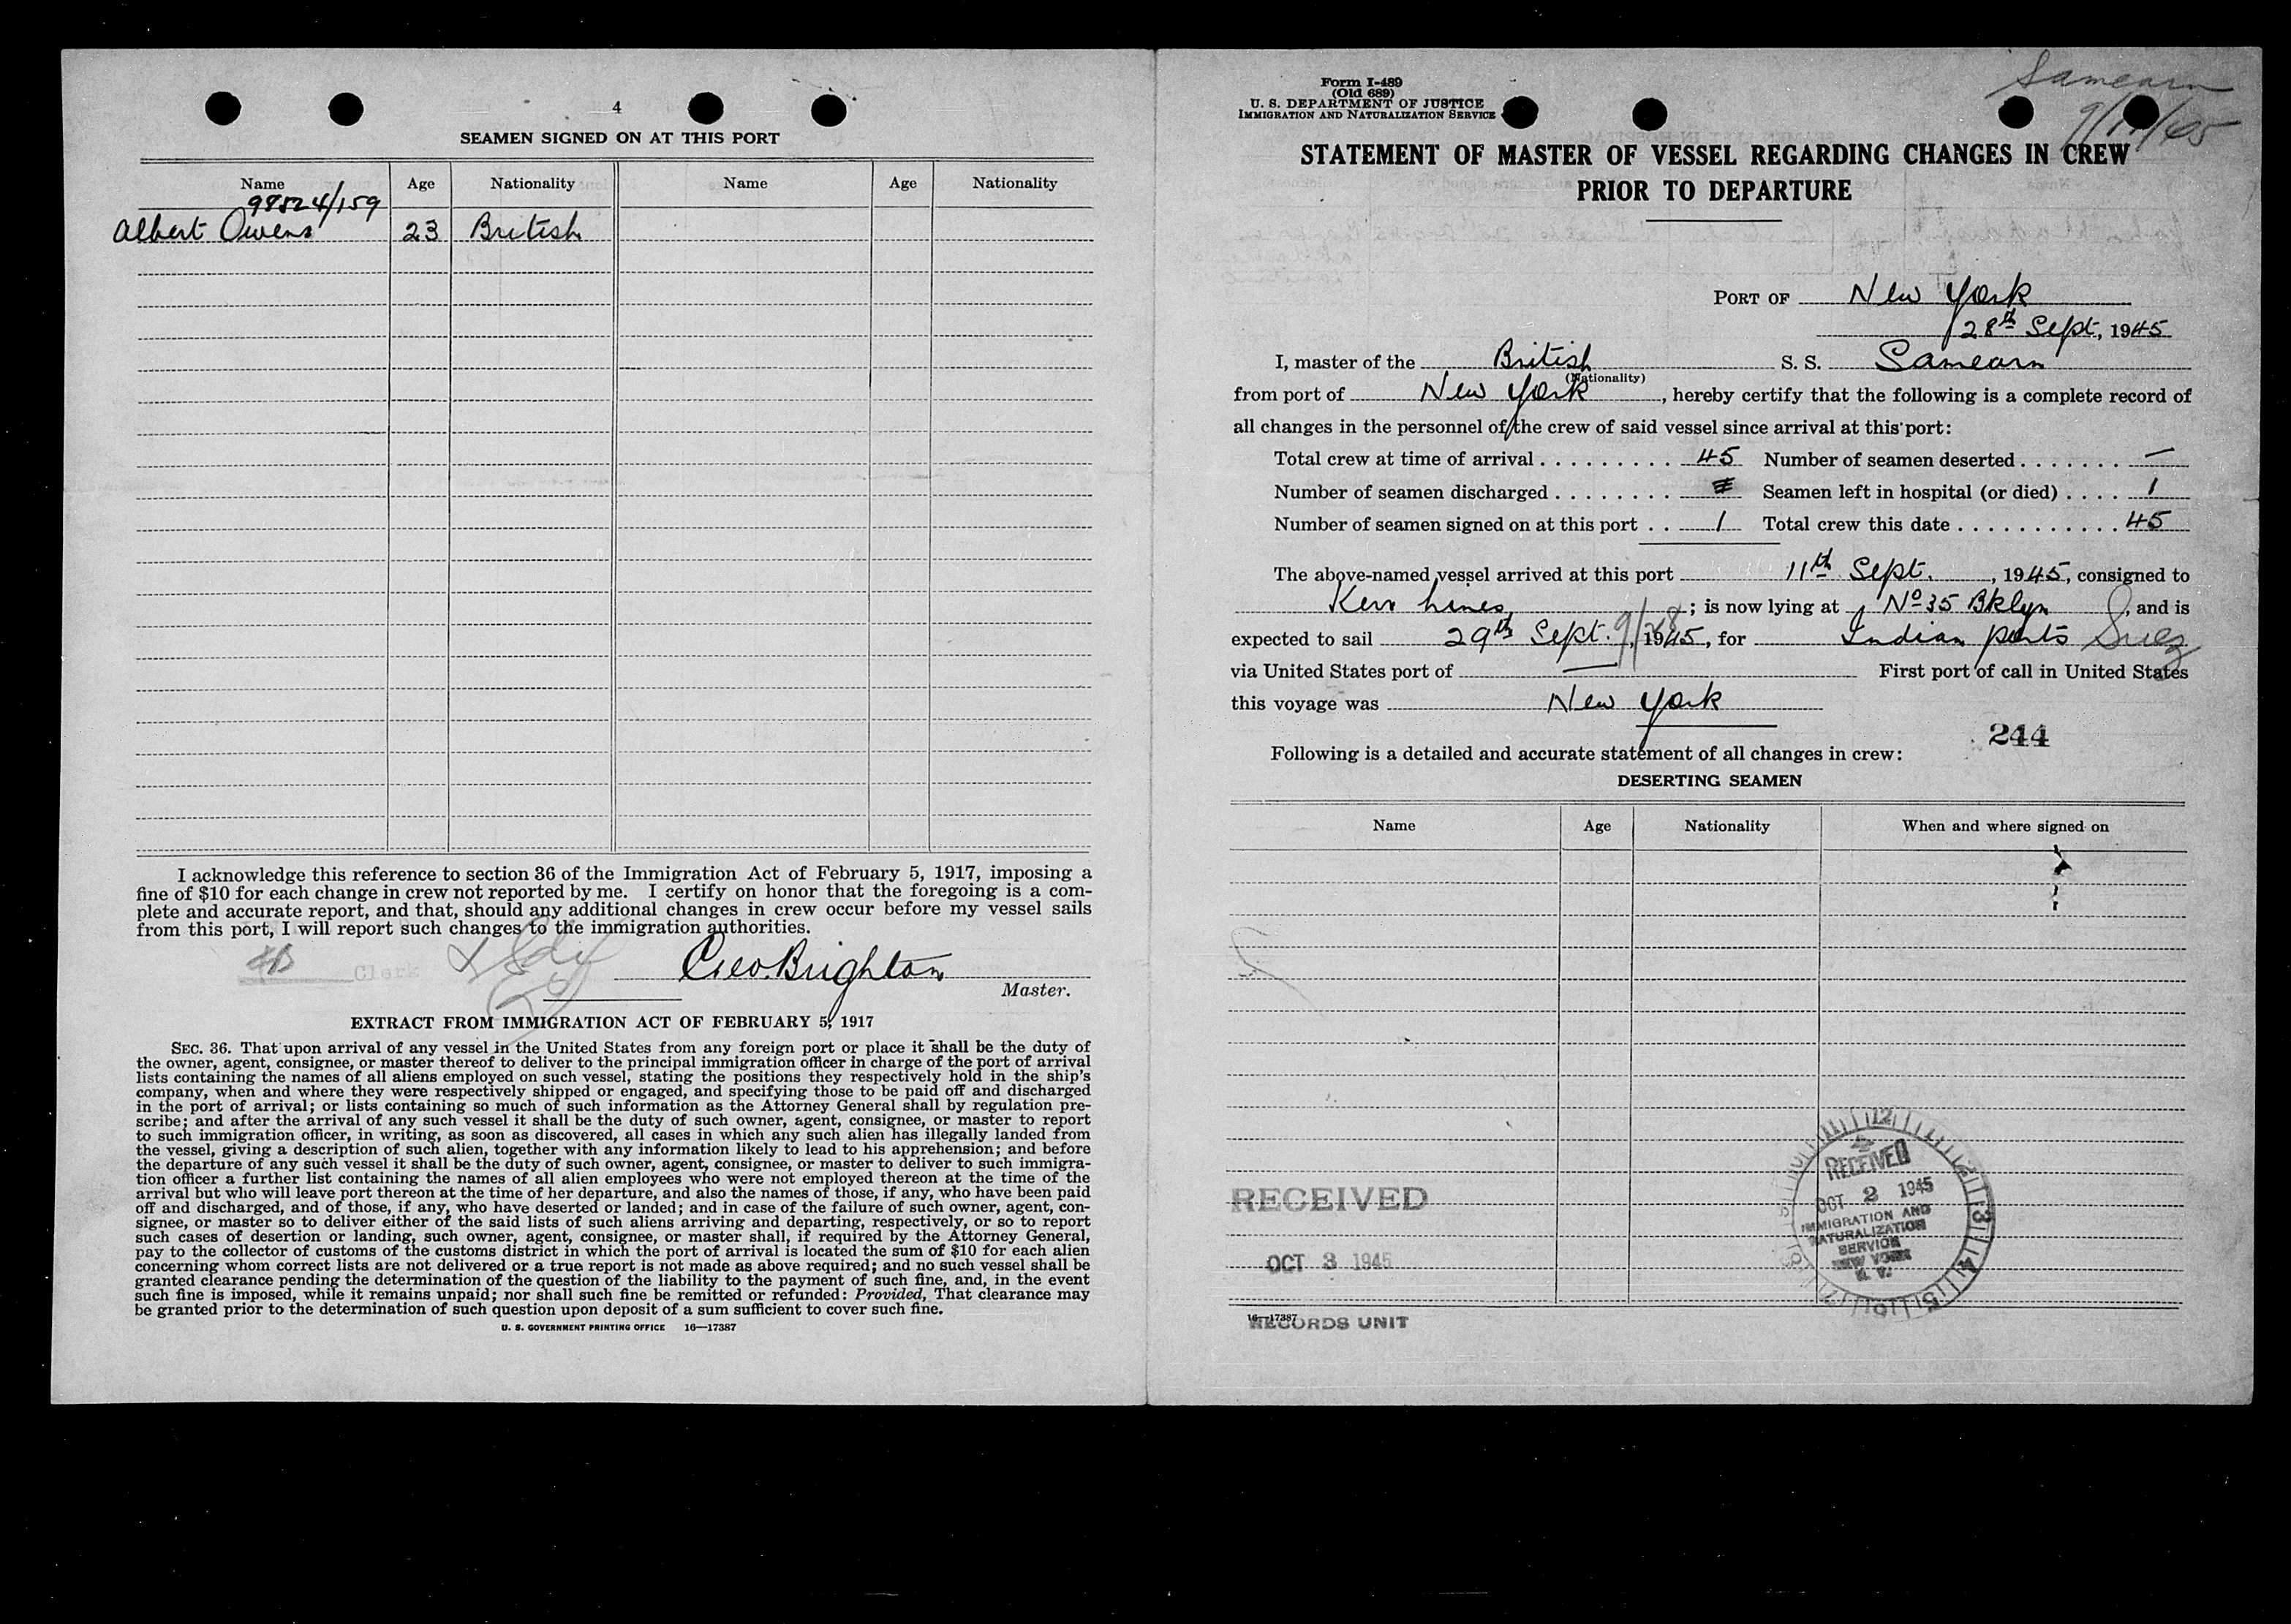 4
SEAMEN SIGNED ON AT THIS PORT
Name Age Nationality Name Age Nationality
98524/159
Albert Owens 23 British
I acknowledge this reference to section 36 of the Immigration Act of February 5, 1917, imposing a
fine of $10 for each change in crew not reported by me. I certify on honor that the foregoing is a com-
plete and accurate report, and that, should any additional changes in crew occur before my vessel sails
from this port, I will report such changes to the immigration authorities.
Clerk
Geo. Brighton
Master.
EXTRACT FROM IMMIGRATION ACT OF FEBRUARY 5, 1917
SEC. 36. That upon arrival of any vessel in the United States from any foreign port or place it shall be the duty of
the owner, agent, consignee, or master thereof to deliver to the principal immigration officer in charge of the port of arrival
lists containing the names of all aliens employed on such vessel, stating the positions they respectively hold in the ship's
company, when and where they were respectively shipped or engaged, and specifying those to be paid off and discharged
in the port of arrival; or lists containing so much of such information as the Attorney General shall by regulation pre-
scribe; and after the arrival of any such vessel it shall be the duty of such owner, agent, consignee, or master to report
to such immigration officer, in writing, as soon as discovered, all cases in which any such alien has illegally landed from
the vessel, giving a description of such alien, together with any information likely to lead to his apprehension; and before
the departure of any such vessel it shall be the duty of such owner, agent, consignee, or master to deliver to such immigra-
tion officer a further list containing the names of all alien employees who were not employed thereon at the time of the
arrival but who will leave port thereon at the time of her departure, and also the names of those, if any, who have been paid
off and discharged, and of those, if any, who have deserted or landed; and in case of the failure of such owner, agent, con-
signee, or master so to deliver either of the said lists of such aliens arriving and departing, respectively, or so to report
such cases of desertion or landing, such owner, agent, consignee, or master shall, if required by the Attorney General,
pay to the collector of customs of the customs district in which the port of arrival is located the sum of $10 for each alien
concerning whom correct lists are not delivered or a true report is not made as above required; and no such vessel shall be
granted clearance pending the determination of the question of the liability to the payment of such fine, and, in the event
such fine is imposed, while it remains unpaid; nor shall such fine be remitted or refunded: Provided, That clearance may
be granted prior to the determination of such question upon deposit of a sum sufficient to cover such fine.
U. S. GOVERNMENT PRINTING OFFICE 16—17387
Form I-489
(Old 689)
U. S. DEPARTMENT OF JUSTICE
IMMIGRATION AND NATURALIZATION SERVICE
Samearn
9/11/45
STATEMENT OF MASTER OF VESSEL REGARDING CHANGES IN CREW
PRIOR TO DEPARTURE
PORT OF New York
28th Sept, 1945
I, master of the British S. S. Samearn
(Nationality)
from port of New York, hereby certify that the following is a complete record of
all changes in the personnel of the crew of said vessel since arrival at this port:
Total crew at time of arrival 45 Number of seamen deserted —
Number of seamen discharged Seamen left in hospital (or died) 1
Number of seamen signed on at this port 1 Total crew this date 45
The above-named vessel arrived at this port 11th Sept., 1945, consigned to
Kerr Lines; is now lying at No 35 Bklyn, and is
expected to sail 29th Sept. 9/28, 1945, for Indian ports Suez
via United States port of — First port of call in United States
this voyage was New York
244
Following is a detailed and accurate statement of all changes in crew:
DESERTING SEAMEN
Name Age Nationality When and where signed on
RECEIVED
OCT 3 1945
RECORDS UNIT
16—17387
RECEIVED
OCT 2 1945
IMMIGRATION AND
NATURALIZATION
SERVICE
NEW YORK
N. Y.